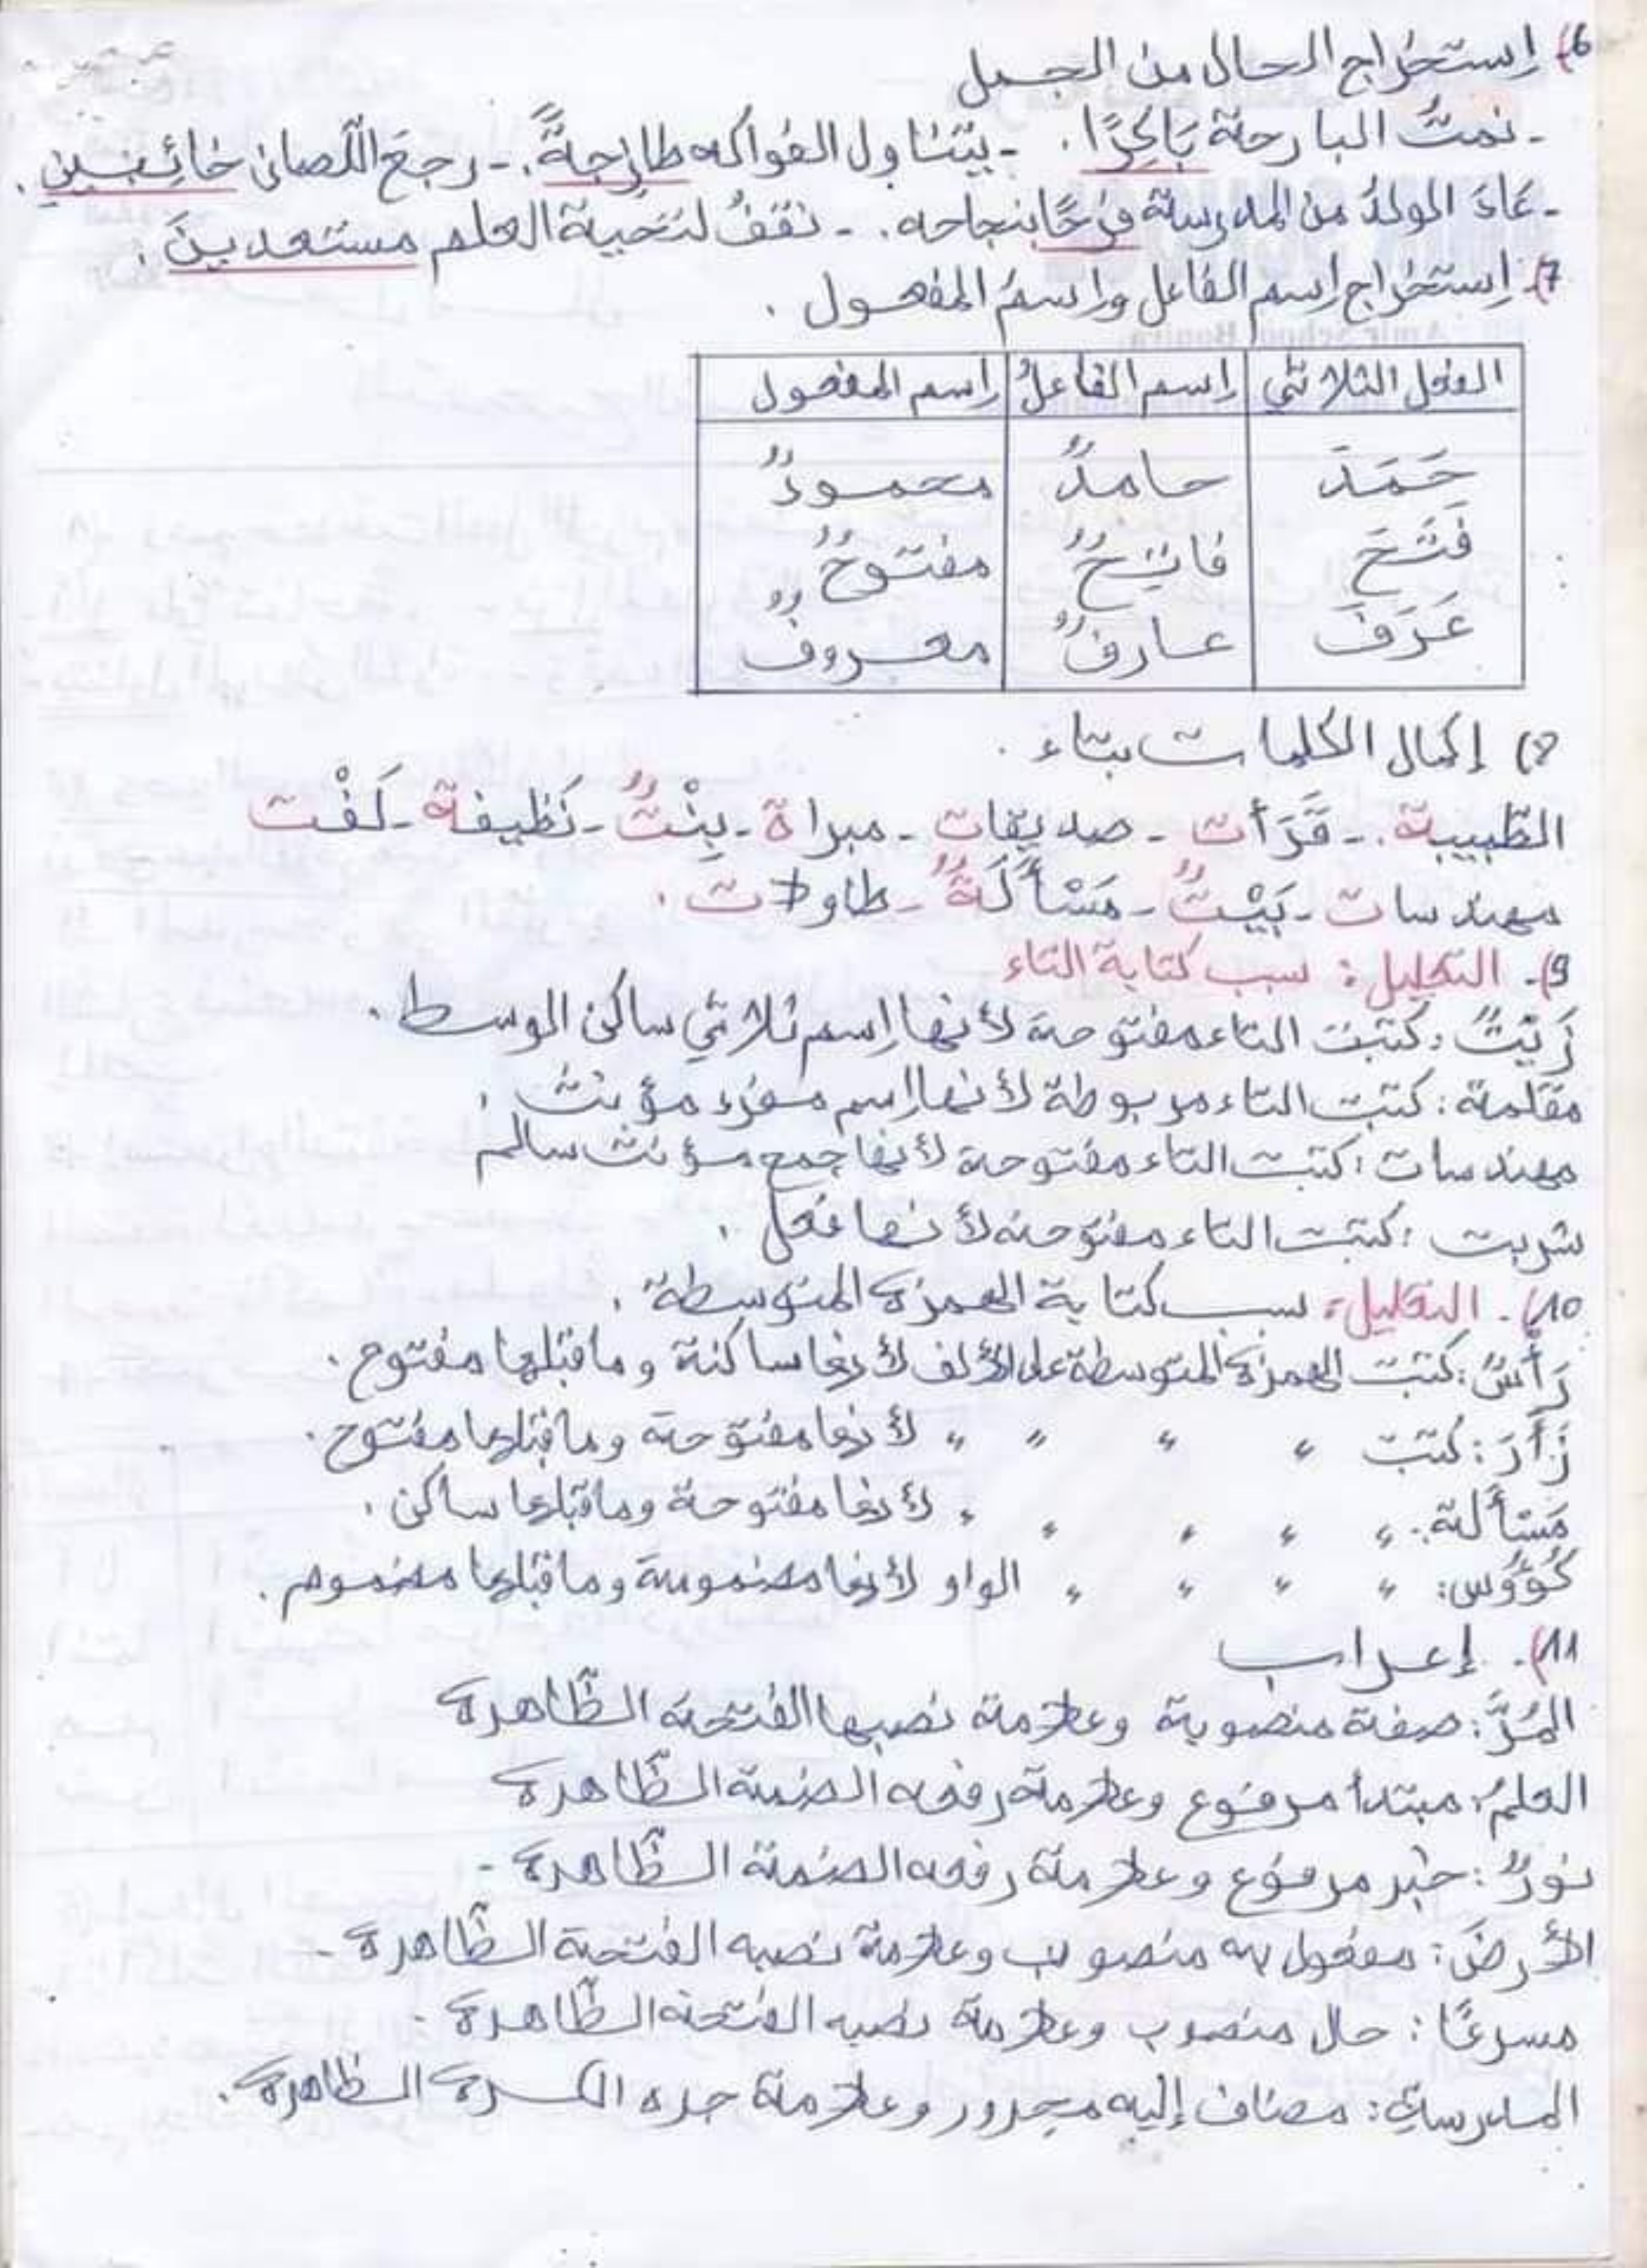 6)- إستخراج الحال من الجمل
- نمتُ البارحة بَاكِرًا. - يتناول الفواكه طازجةً. - رجعَ اللّصان خائبين.
- عَادَ الولدُ من المدرسة فرحًا بنجاحه. - نقفُ لتحية العلم مستعدينَ.
7)- إستخراج إسم الفاعل وإسمُ المفعول.
الفعل الثلاثي | إسم الفاعلُ | إسم المفعول
حَمَدَ | حامدٌ | محمودٌ
فَتَحَ | فاتِحٌ | مفتوحٌ
عَرَفَ | عارفٌ | معروفٌ
8) إكمال الكلمات بتاء.
الطّبيبة. - قَرَأت - صديقات - مبراة - بِنْتٌ - نَظيفة - لَفْت
مهندسات - بَيْتٌ - مَسْأَلَةٌ - طاولات.
9)- التعليل: سبب كتابة التاء
زَيْتٌ: كتبت التاء مفتوحة لأنها إسم ثلاثي ساكن الوسط.
مقلمة: كتبت التاء مربوطة لأنها إسم مفرد مؤنث.
مهندسات: كتبت التاء مفتوحة لأنها جمع مؤنث سالم
شربت: كتبت التاء مفتوحة لأنها فعل.
10)- التعليل: سبب كتابة الهمزة المتوسطة.
رَأْسٌ: كتبت الهمزة المتوسطة على الألف لأنها ساكنة وما قبلها مفتوح.
زَأَرَ: كتبت " " " " لأنها مفتوحة وما قبلها مفتوح.
مَسْألة: " " " " " لأنها مفتوحة وما قبلها ساكن.
كُؤُوس: " " " " الواو لأنها مضمومة وما قبلها مضموم.
11)- إعراب
المُرَّ: صفة منصوبة وعلامة نصبها الفتحة الظّاهرة
العلمُ: مبتدأ مرفوع وعلامة رفعه الضمة الظّاهرة
نورٌ: خبر مرفوع وعلامة رفعه الضمة الظّاهرة -
الأرضَ: مفعول به منصوب وعلامة نصبه الفتحة الظّاهرة -
مسرعًا: حال منصوب وعلامة نصبه الفتحة الظّاهرة -
المدرسةِ: مضاف إليه مجرور وعلامة جره الكسرة الظاهرة.